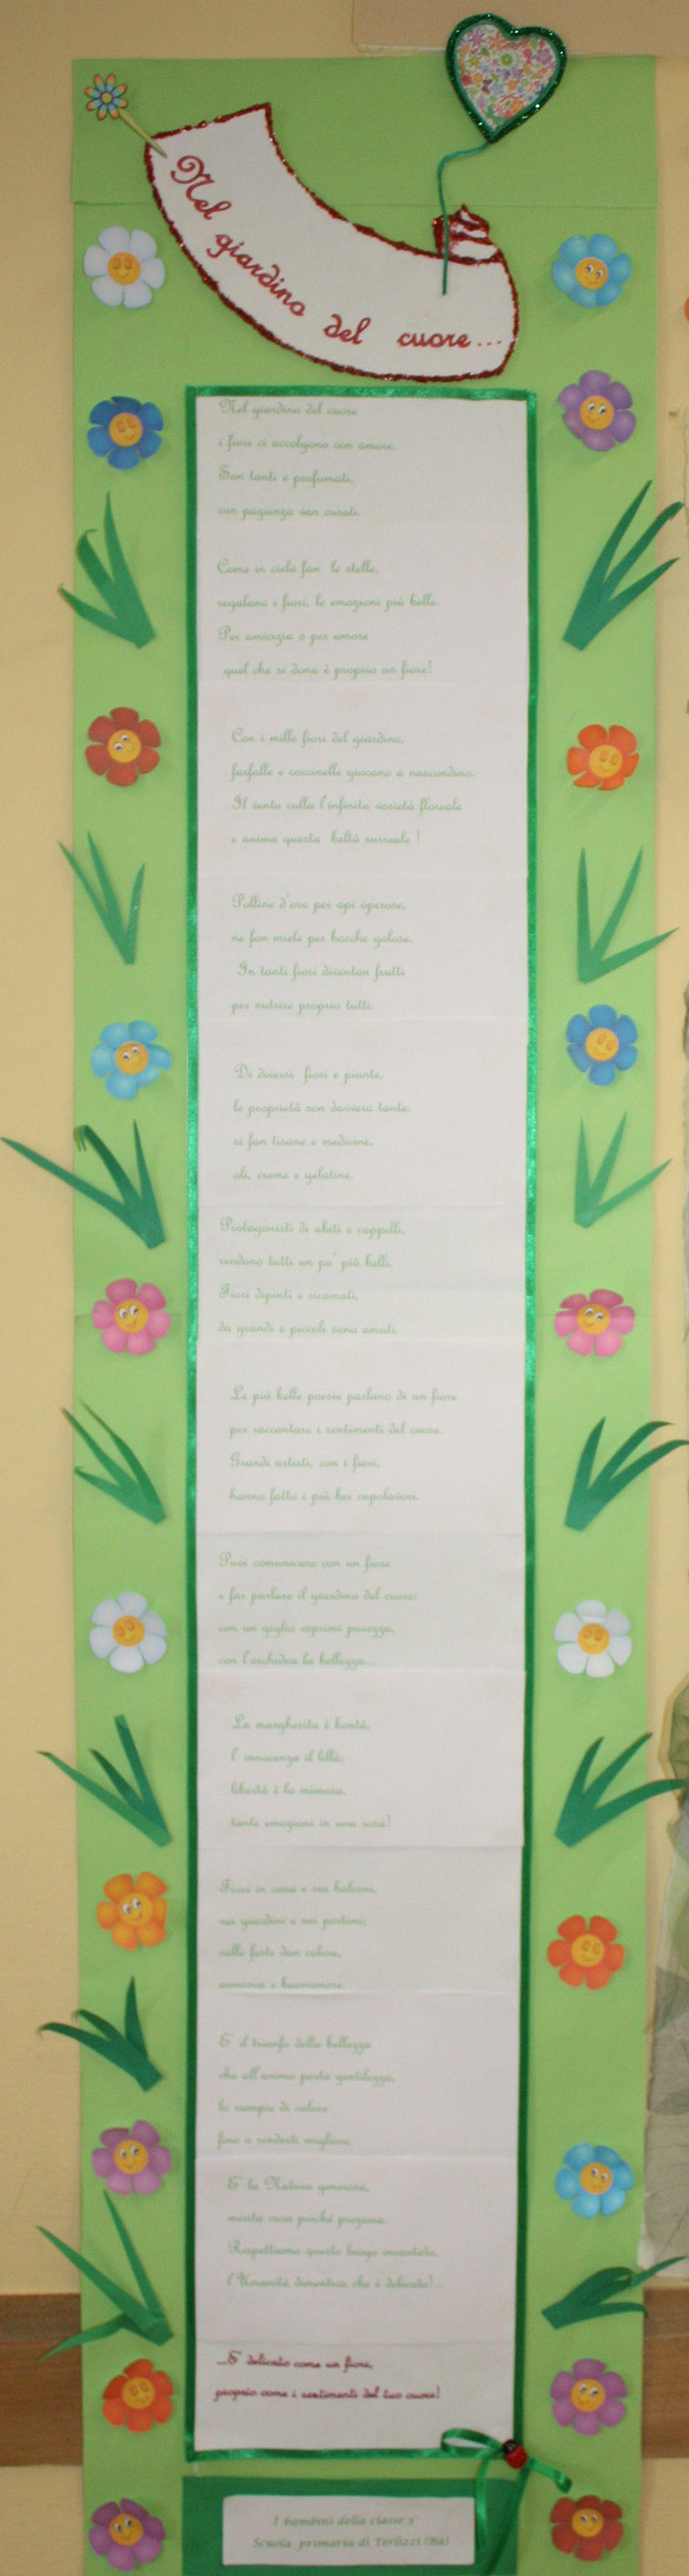 Nel giardino del cuore...
Nel giardino del cuore
i fiori ci accolgono con amore.
Son tanti e profumati,
con pazienza van curati.
Come in cielo fan le stelle,
regalano i fiori, le emozioni più belle.
Per amicizia o per amore
quel che si dona è proprio un fiore!
Con i mille fiori del giardino,
farfalle e coccinelle giocano a nascondino.
Il vento culla l'infinita varietà floreale
e anima questa beltà surreale !
Polline d'oro per api operose,
ne fan miele per bocche golose.
In tanti fiori diventan frutti
per nutrire proprio tutti.
Di diversi fiori e piante,
le proprietà son davvero tante:
si fan tisane e medicine,
oli, creme e gelatine.
Protagonisti di abiti e cappelli,
rendono tutti un po' più belli.
Fiori dipinti e ricamati,
da grandi e piccoli sono amati.
Le più belle poesie parlano di un fiore
per raccontare i sentimenti del cuore.
Grandi artisti, con i fiori,
hanno fatto i più bei capolavori.
Puoi comunicare con un fiore
e far parlare il giardino del cuore:
con un giglio esprimi purezza,
con l'orchidea la bellezza...
La margherita è bontà,
l' innocenza il lillà;
libertà è la mimosa,
tante emozioni in una rosa!
Fiori in casa e sui balconi,
nei giardini e sui portoni;
nelle feste dan colore,
armonia e buonumore.
E' il trionfo della bellezza
che all'animo porta gentilezza,
lo riempie di colore
fino a renderti migliore.
E' la Natura generosa,
merita cura poiché preziosa.
Rispettiamo questo luogo incantato,
l'Umanità dimentica che è delicato!...
...E' delicato come un fiore,
proprio come i sentimenti del tuo cuore!
I bambini della classe 3^
Scuola primaria di Terlizzi (Ba)